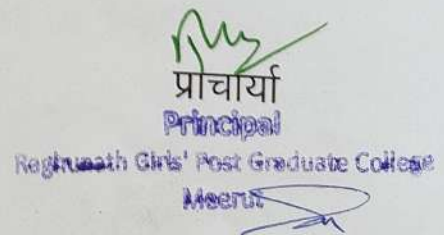 प्राचार्या
Principal
Raghunath Girls' Post Graduate College
Meerut